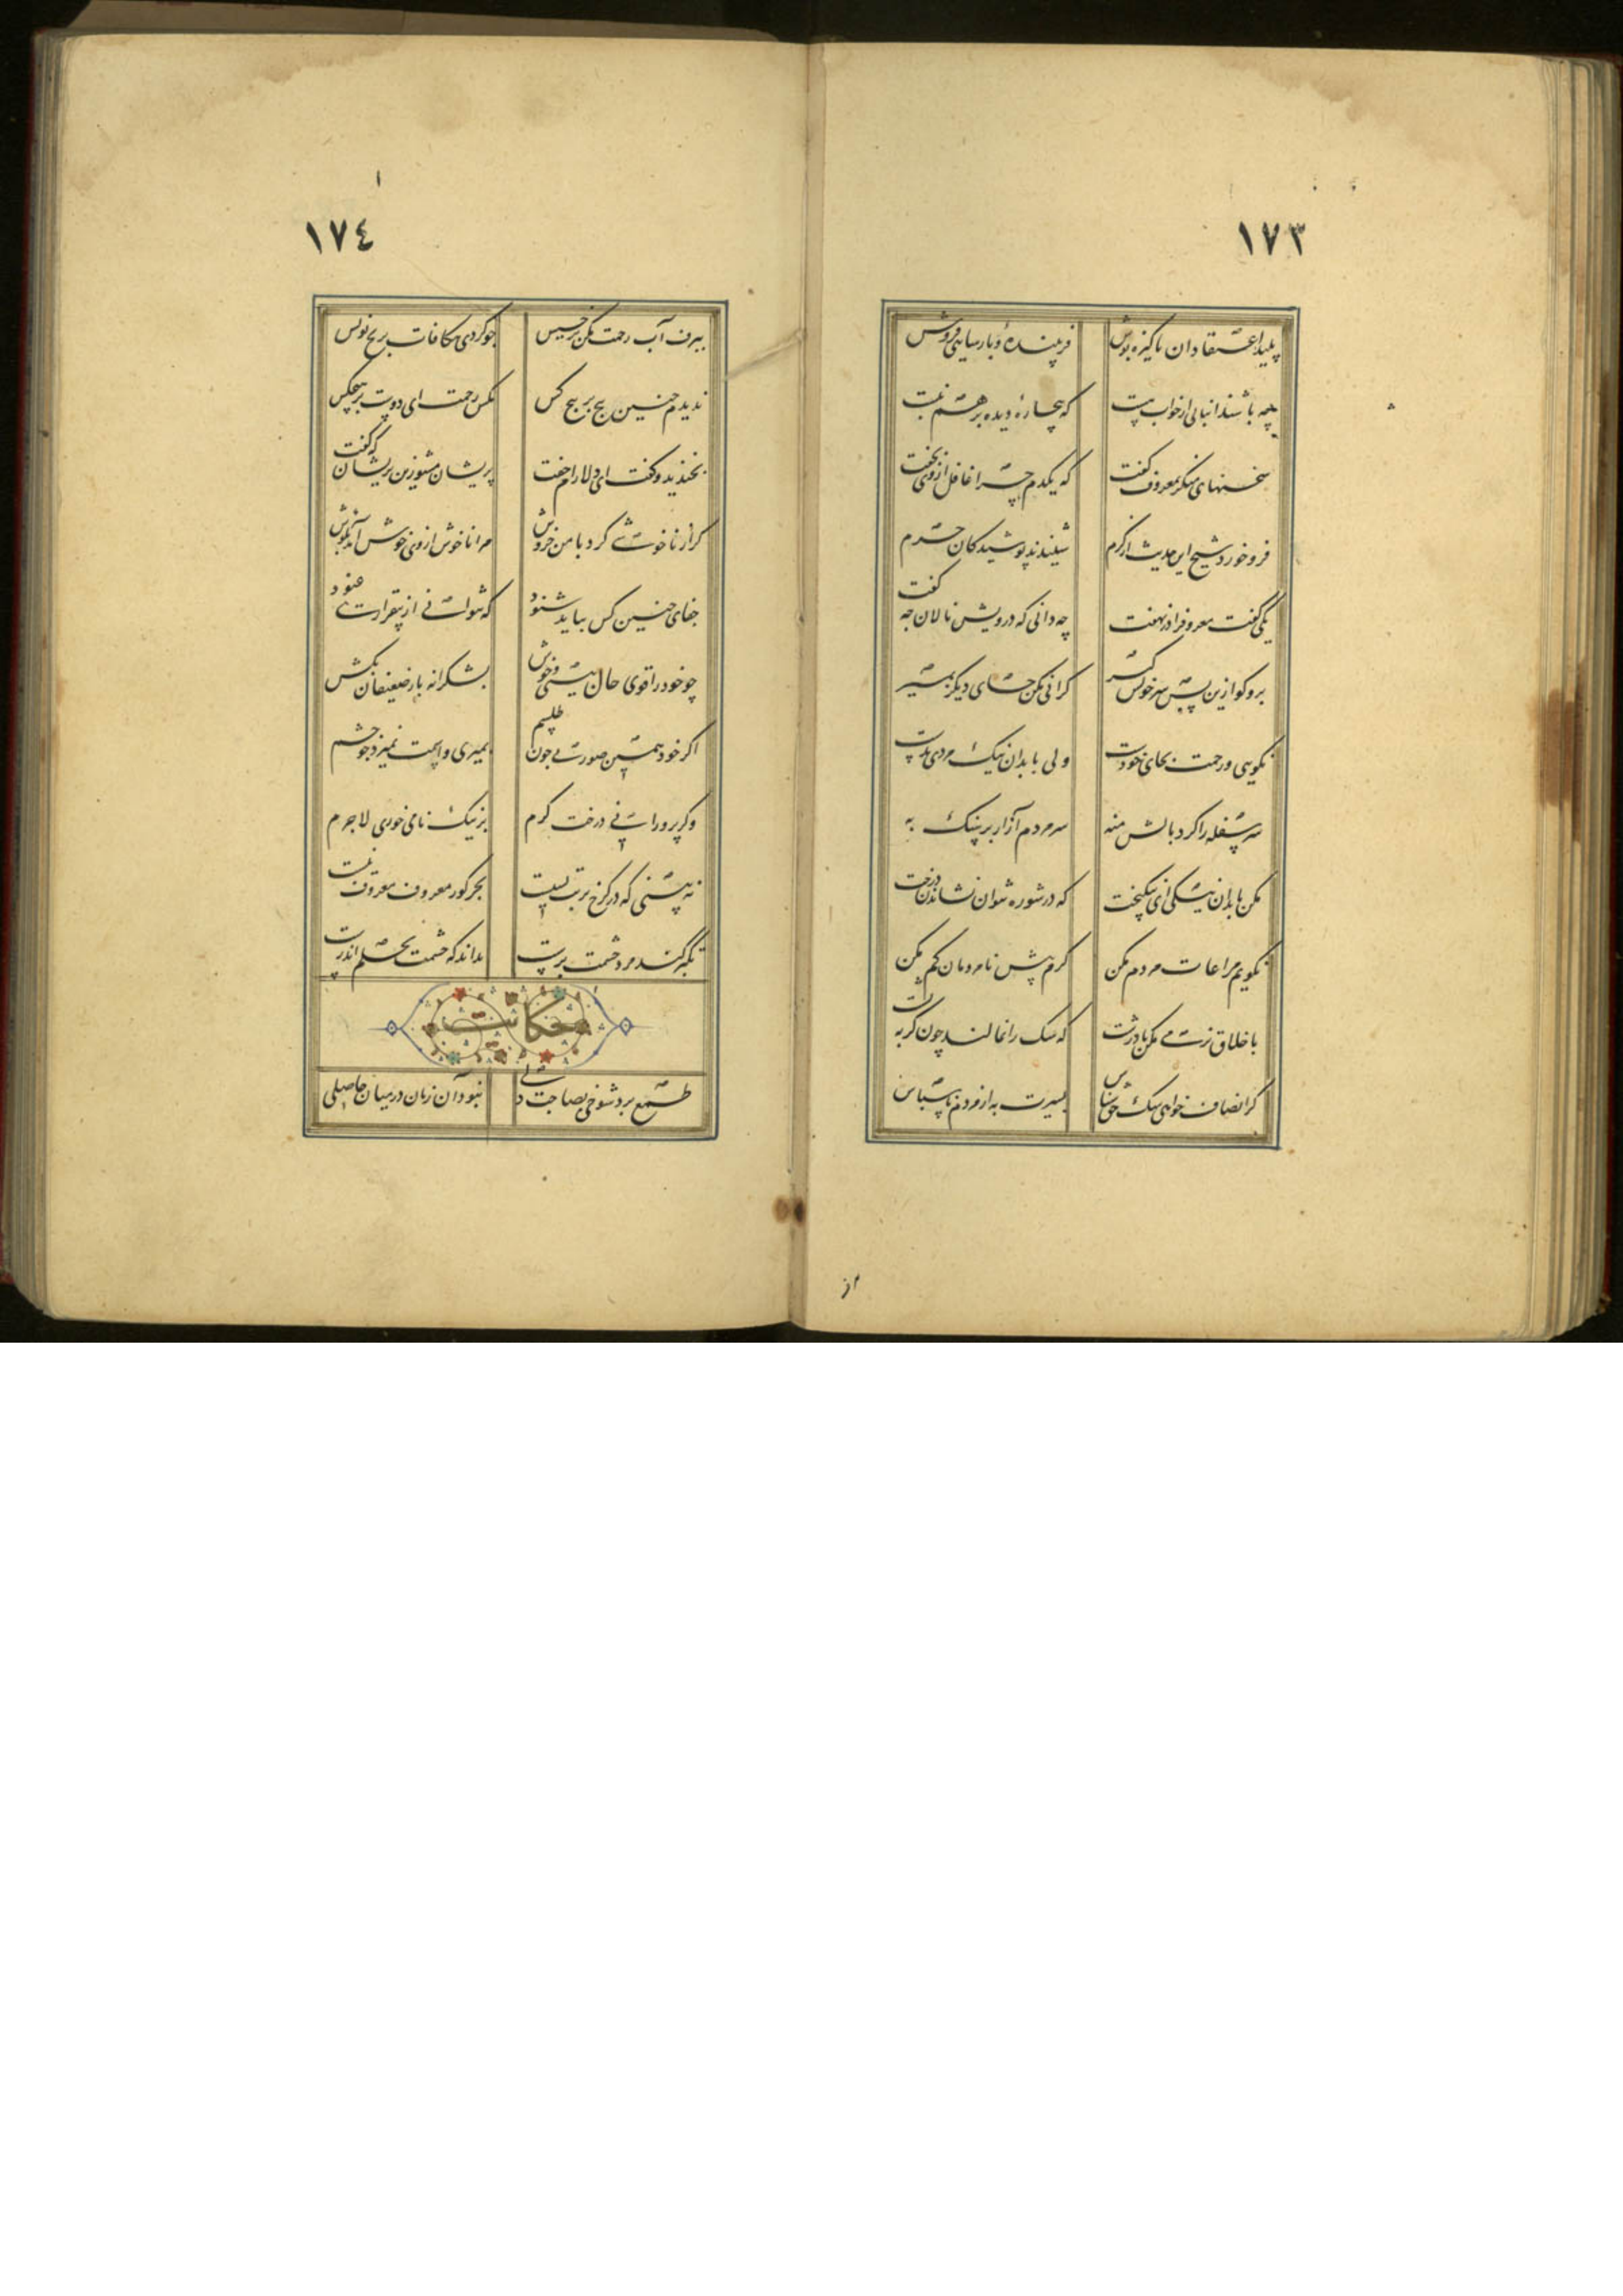 ١٧٣
پلید اعتقادان پاکیزه پوش فریبنده و پارسایی فروش
چه باشند انبانی از خواب مست که بیچارهٔ دیده بر هم نبست
سخنهای منکر بمعروف گفت که یکدم چرا غافل از وی بخفت
فرو خورد شیخ این حدیث از کرم شنیدند پوشیدگان حرم
یکی گفت معروف را در نهفت چه دانی که درویش نالان چه گفت
برو گو ازین پس سر خویش گیر گرانی مکن جای دیگر بمیر
نکویی و رحمت بجای خودست ولی با بدان نیک مردی بدست
سر سفله را گرد بالش منه سر مردم آزار بر سنگ به
مکن با بدان نیکی ای نیکبخت که در شوره نتوان نشاندن درخت
نگویم مراعات مردم مکن کرم پیش نامردمان گم مکن
باخلاق نرمی مکن با درشت که سگ را نمالند چون گربه پشت
گر انصاف خواهی سگ حق شناس بسیرت به از مردم ناسپاس
١٧٤
ببرف آب رحمت مکن بر خسیس چو کردی مکافات بر یخ نویس
ندیدم چنین پیچ بر پیچ کس مکن رحمت ای دوست بر هیچکس
بخندید و گفت ای دلارام جفت پریشان مشو زین پریشان که گفت
گر از ناخوشی کرد با من خروش مرا ناخوش از وی خوش آمد بگوش
جفای چنین کس بباید شنود که نتواند از بیقراری غنود
چو خود را قوی حال بینی و خوش بشکرانه بار ضعیفان بکش
اگر خود همین صورتی چون طلسم بمیری و اسمت بمیرد چو جسم
وگر پرورانی درخت کرم بر نیک نامی خوری لاجرم
نه بینی که در کرخ تربت بسیست بجز گور معروف معروف نیست
تکبر کند مرد حشمت پرست نداند که حشمت بحلم اندرست
حکایت
طمع برد شوخی بصاحبدلی نبود آن زمان در میان حاصلی